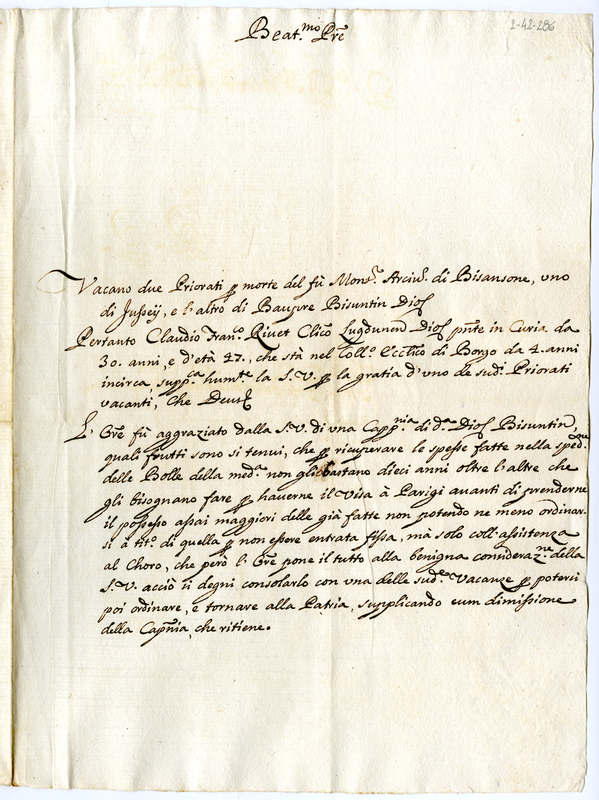 2-42-286
Beat.mo Pre
Vacano due Priorati p morte del fù Mons.r Arciu.o di Bisansone, uno
di Jussey, e l'altro di Baupre Bisuntin Dios
Pertanto Claudio Fran.co Rivet Clico Lugdunen Dios pnte in Curia da
30. anni, e d'età 47., che stà nel Coll.o Ecctico di Borgo da 4. anni
incirca, supp.ca hum.te la S.V. p la gratia d'uno de sud.i Priorati
vacanti, Che Deus
L' Ore fù aggraziato dalla S.V. di una Capp.nia di d.a Dios Bisuntin,
quali frutti sono si tenui, che p ricuperare le spese fatte nella sped.ne
delle Bolle della med.a non gli bastano dieci anni oltre l'altre che
gli bisognano fare p hauerne il Visa à Parigi auanti di prenderne
il possesso assai maggiori delle già fatte non potendo ne meno ordinar-
si à tit.o di quella p non essere entrata fissa, mà solo coll'assistenza
al Choro, che però l'Ore pone il tutto alla benigna consideraz.ne della
S.V. acciò si degni consolarlo con una delle sud.e Vacanze p potersi
poi ordinare, e tornare alla Patria, supplicando cum dimissione
della Capnia, che ritiene.